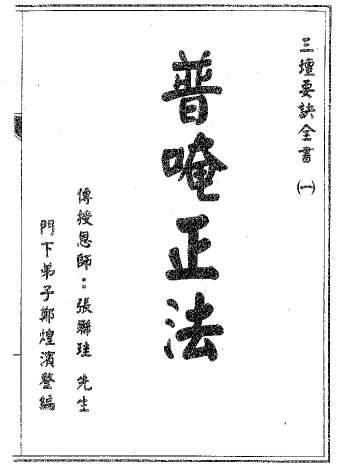 三壇要訣全書㈠
普唵正法
傳授恩師：張聯珪 先生
門下弟子鄭煌濱整編